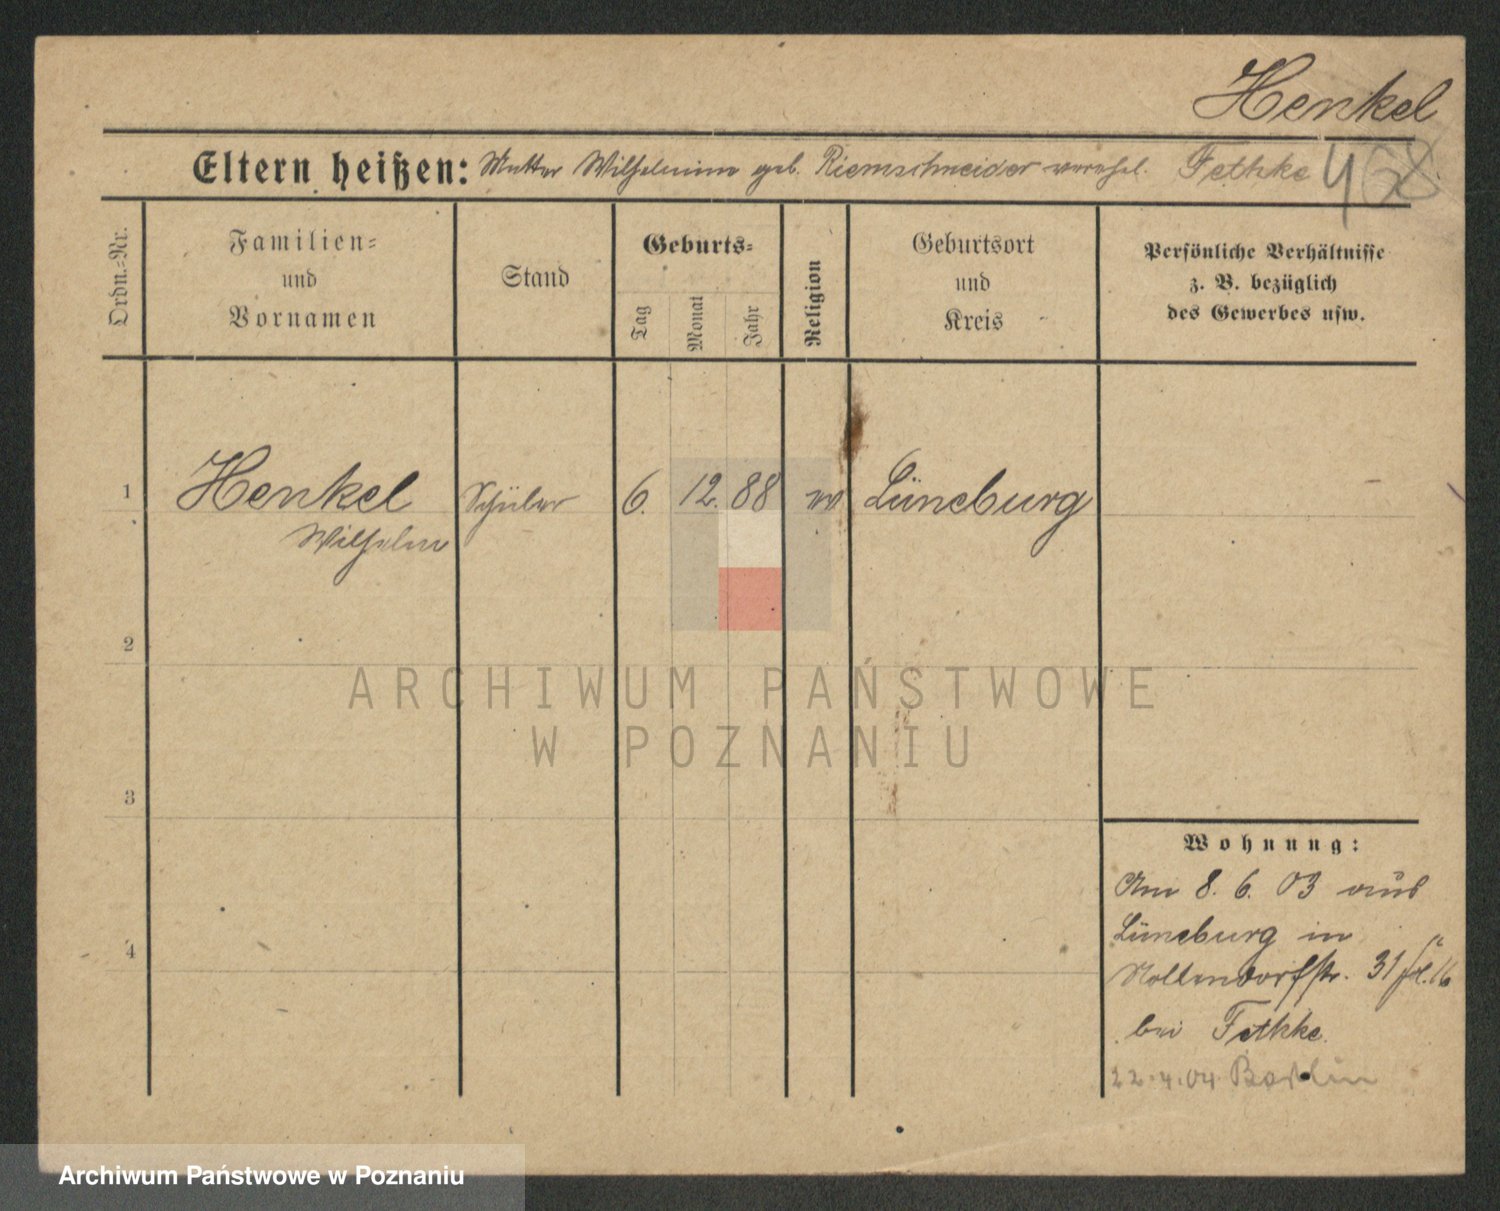 Henkel
Eltern heißen: Mutter Wilhelmine geb. Riemschneider verehel. Fethke
468
Ordn.=Nr.
Familien=
und
Vornamen
Stand
Geburts=
Tag
Monat
Jahr
Religion
Geburtsort
und
Kreis
Persönliche Verhältnisse
z. B. bezüglich
des Gewerbes usw.
1 Henkel Schüler 6. 12. 88 ev Lüneburg
Wilhelm
2
ARCHIWUM PAŃSTWOWE
W POZNANIU
3
Wohnung:
Am 8. 6. 03 aus
Lüneburg in
4
Nollendorfstr. 31
bei Fethke.
22.4.04 Berlin
Archiwum Państwowe w Poznaniu